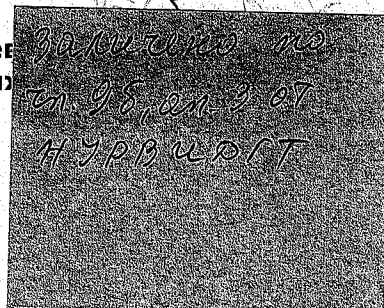 Заличено по
чл. 9б, ал. 3 от
НУРВИДГТ